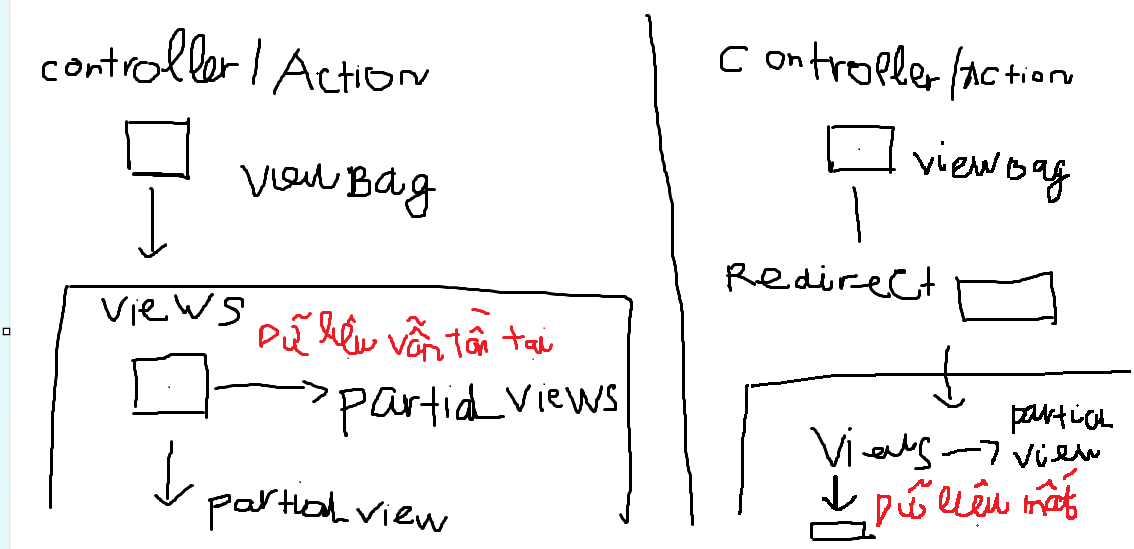 controller / Action
viewBag
views
Dữ liệu vẫn tồn tại
partial views
partial view
Controller/Action
viewBag
Redirect
partial
Views
view
Dữ liệu mất